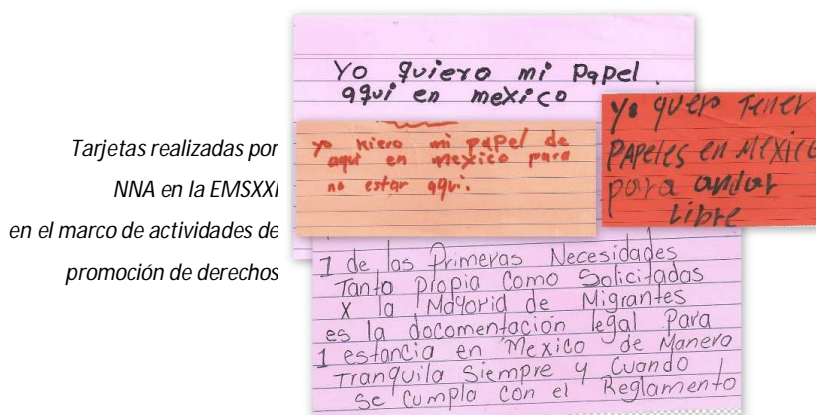 Tarjetas realizadas por
NNA en la EMSXXI
en el marco de actividades de
promoción de derechos
Yo quiero mi papel.
aqui en mexico
yo kiero mi papel de
aqui en mexico para
no estar aqui.
yo quero Tener
PAPeles en México
para andar
Libre
1 de las Primeras Necesidades
Tanto propia Como Solicitadas
X la Mayoria de Migrantes
es la documentación legal Para
1 estancia en Mexico de Manera
Tranquila Siempre y Cuando
se Cumpla con el Reglamento